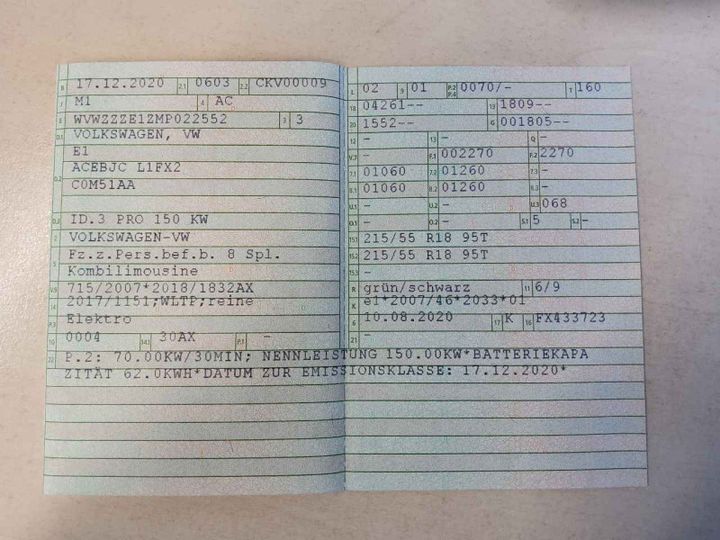 B 17.12.2020 2.1 0603 2.2 CKV00009
J M1 4 AC
E WVWZZZE1ZMP022552 3 3
D.1 VOLKSWAGEN, VW
E1
D.2 ACEBJC L1FX2
C0M51AA
D.3 ID.3 PRO 150 KW
2 VOLKSWAGEN-VW
5 Fz.z.Pers.bef.b. 8 Spl.
Kombilimousine
V.9 715/2007*2018/1832AX
14 2017/1151;WLTP;reine
P.3 Elektro
10 0004 14.1 30AX P.1 -
L 02 9 01 P.2 P.4 0070/- T 160
18 04261-- 19 1809--
20 1552-- G 001805--
12 - 13 - Q -
V.7 - F.1 002270 F.2 2270
7.1 01060 7.2 01260 7.3 -
8.1 01060 8.2 01260 8.3 -
U.1 - U.2 - U.3 068
O.1 - O.2 - S.1 5 S.2 -
15.1 215/55 R18 95T
15.2 215/55 R18 95T
15.3 -
R grün/schwarz 11 6/9
K e1*2007/46*2033*01
6 10.08.2020 17 K 16 FX433723
21 -
22 P.2: 70.00KW/30MIN; NENNLEISTUNG 150.00KW*BATTERIEKAPA
ZITÄT 62.0KWH*DATUM ZUR EMISSIONSKLASSE: 17.12.2020*